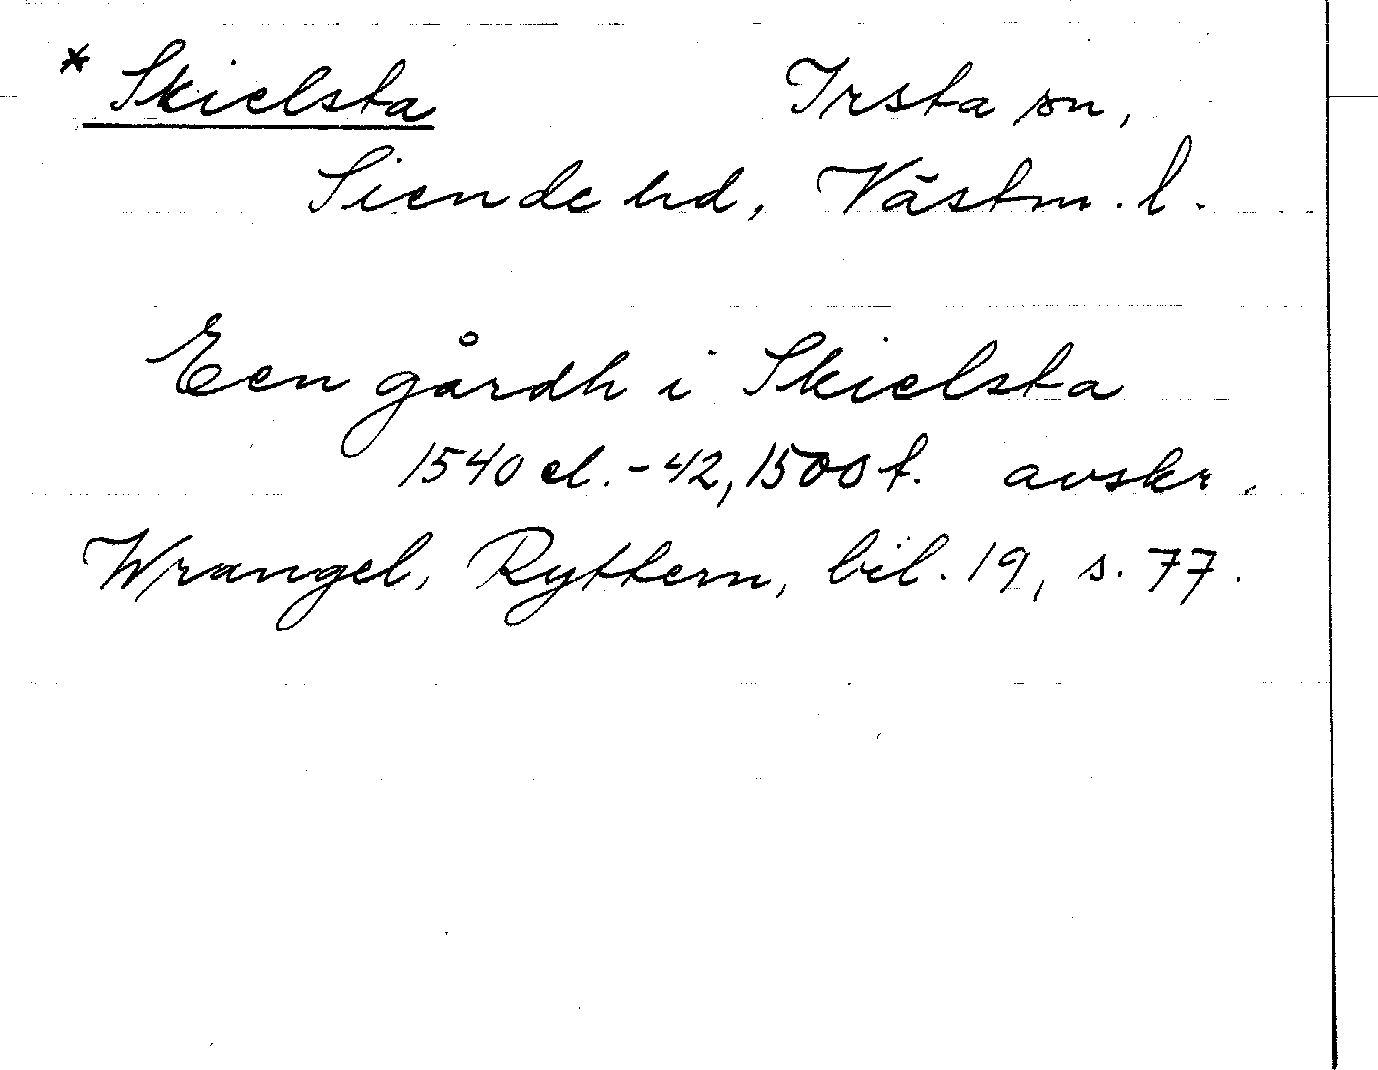 * Skielsta Irsta sn,
Siende hd, Västm. l.
Een gårdh i Skielsta
1540 el. -42, 1500 t. avskr.
Wrangel, Ryttern, bil. 19, s. 77.